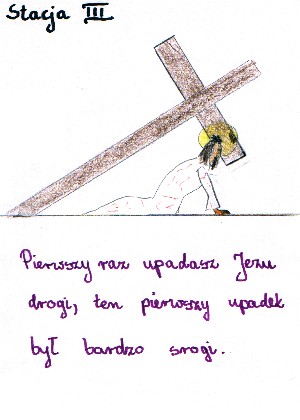 Stacja III
Pierwszy raz upadasz Jezu
drogi, ten pierwszy upadek
był bardzo srogi.